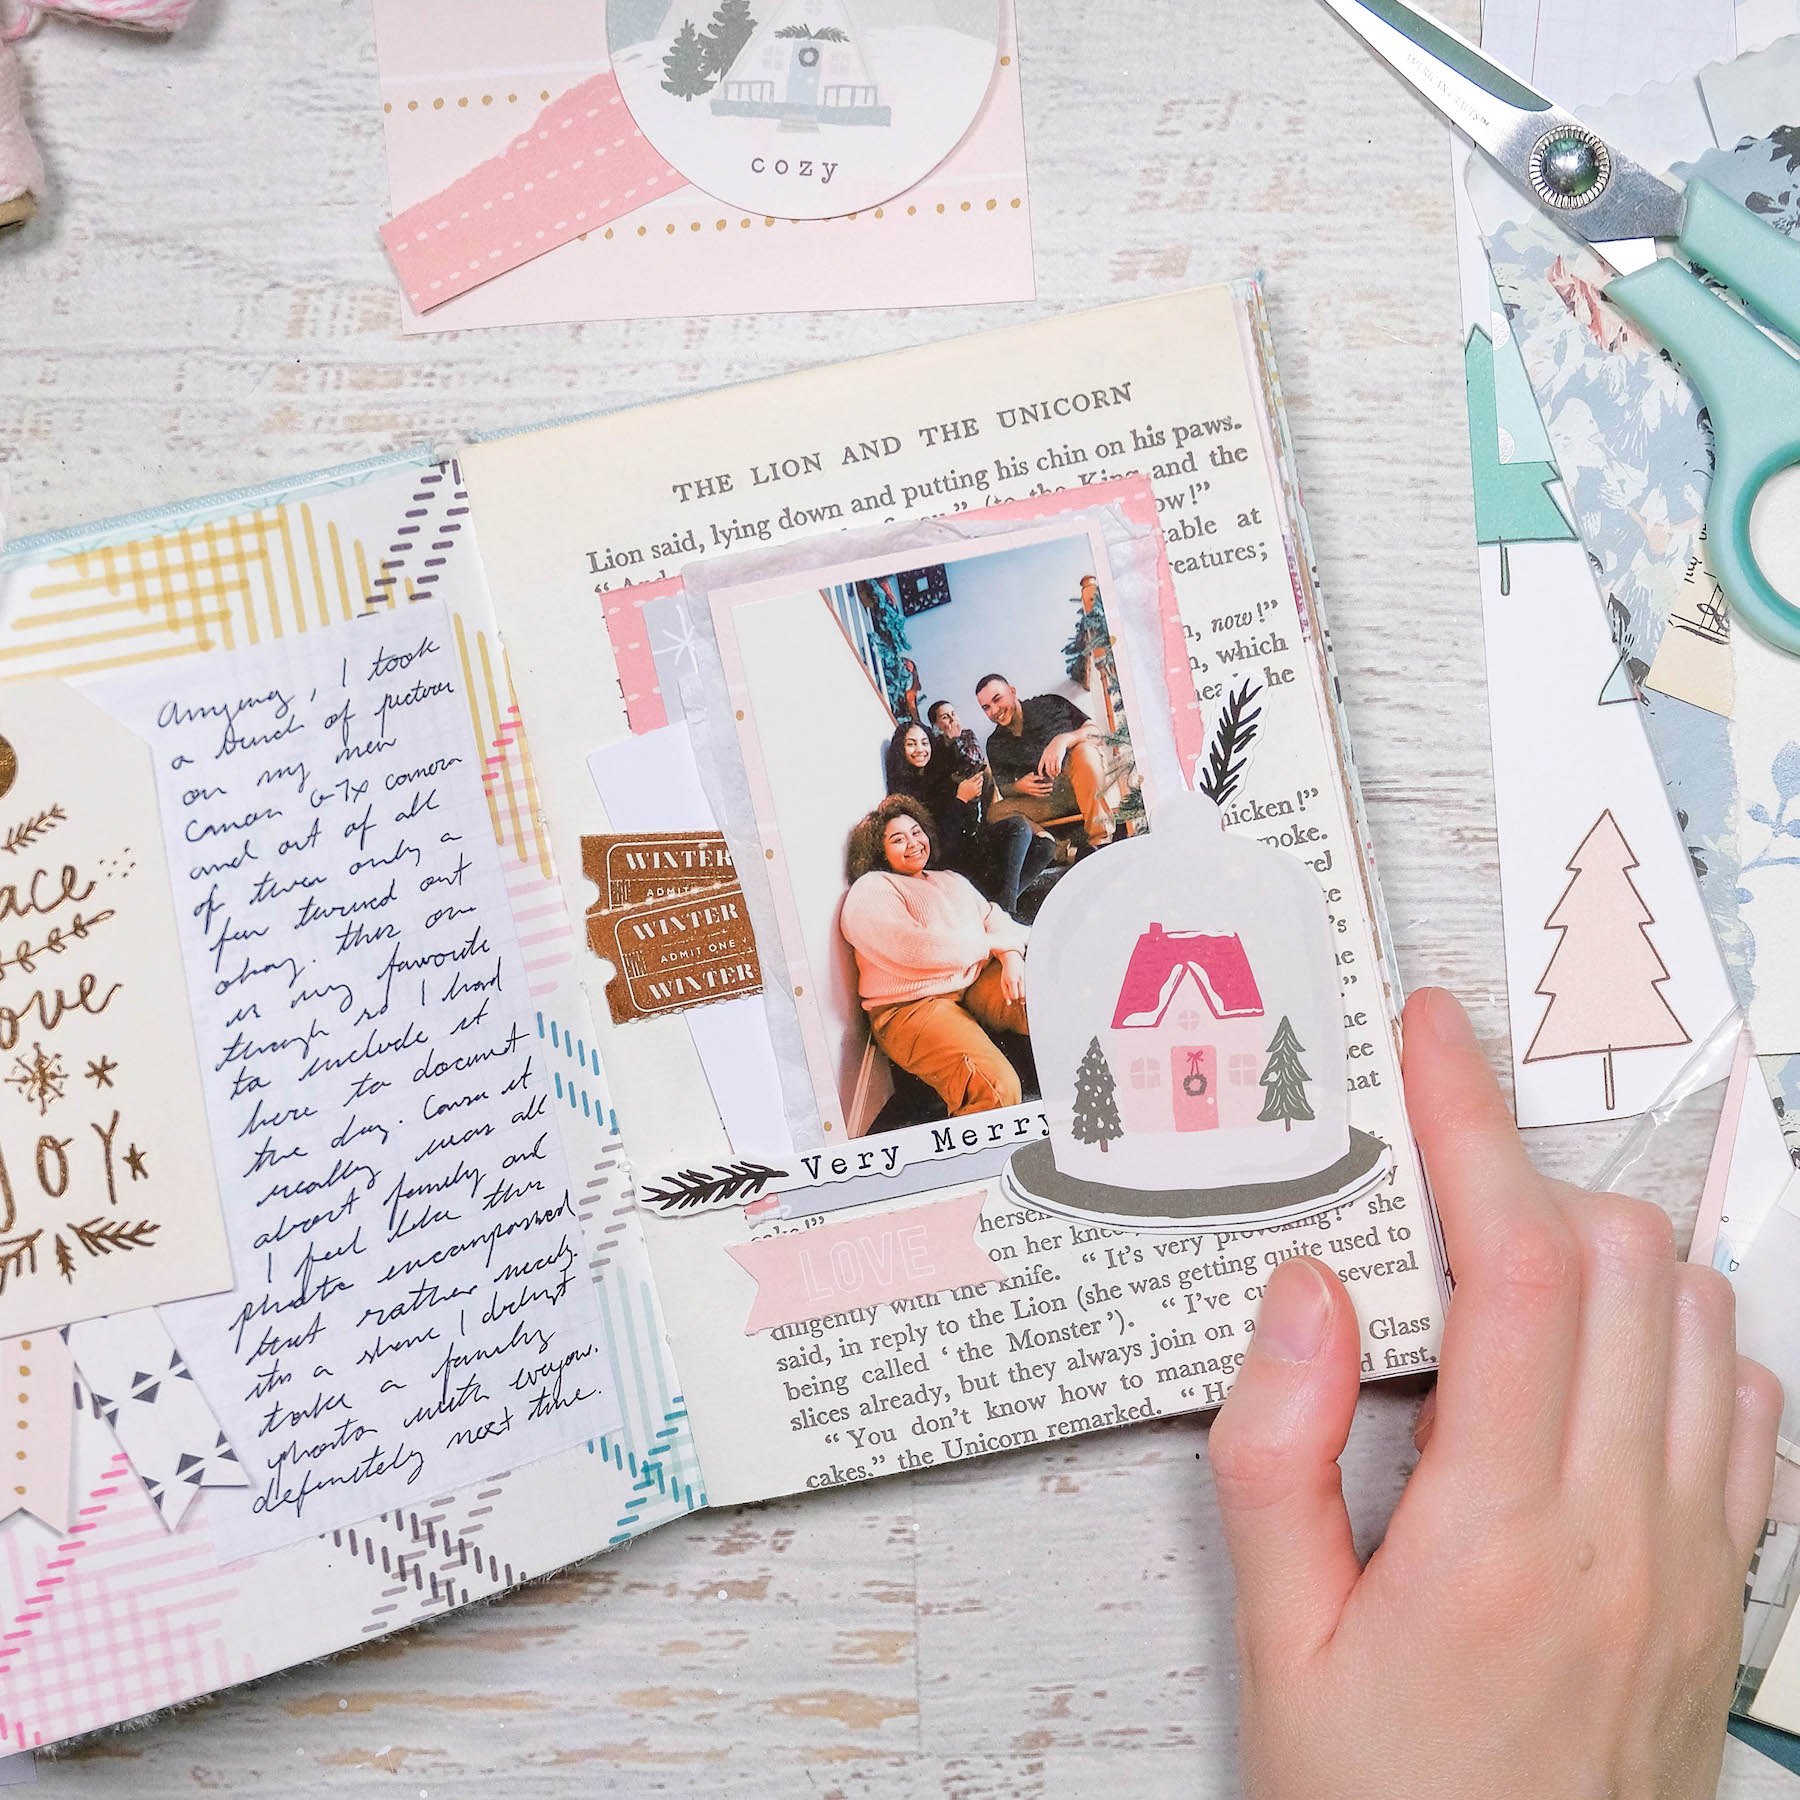 cozy
AMERICAN CRAFTS™
ace
ove
JOY
Anyway, I took
a bunch of pictures
on my new
Canon G7x camera
and out of all
of them only a
few turned out
okay. This one
is my favorite
though so I had
to include it
here to document
the day. Cause it
really was all
about family and
I feel like this
photo encompassed
that rather nicely.
its a shame I didn't
take a family
photo with everyone.
definitely next time.
THE LION AND THE UNICORN
Lion said, lying down and putting his chin on his paws.
" And (to the King and the
ow!"
table at
eatures;
n, now!"
n, which
he
hicken!"
spoke.
rel
te
's
he
"
he
ee
hat
WINTER
ADMIT
WINTER
ADMIT ONE
WINTER
Very Merry
y
cake!" herse
LOVE
on her knee "It's very provoking!" she
diligently with the knife.
said, in reply to the Lion (she was getting quite used to
being called 'the Monster'). "I've cu several
slices already, but they always join on a
"You don't know how to manage Glass
cakes," the Unicorn remarked. "Ha d first,